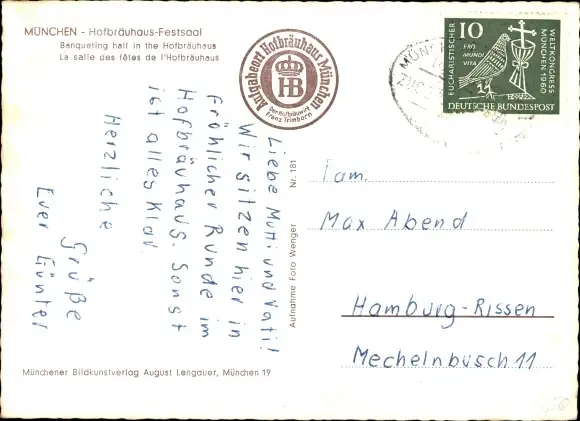 MÜNCHEN - Hofbräuhaus-Festsaal
Banqueting hall in the Hofbräuhaus
La salle des fêtes de l'Hofbräuhaus
Aufgabeort Hofbräuhaus München
HB
Der Hofbräuwirt
Franz Trimborn
10
EUCHARISTISCHER
WELTKONGRESS
MÜNCHEN 1960
PRO
MUNDI
VITA
DEUTSCHE BUNDESPOST
Liebe Mutti und Vati!
Wir sitzen hier in
fröhlicher Runde im
Hofbräuhaus. Sonst
ist alles klar.
Herzliche
Grüße
Euer Günter
Nr. 181
Aufnahme Foto Wenger
Fam.
Max Abend
Hamburg-Rissen
Mechelnbusch 11
Münchener Bildkunstverlag August Lengauer, München 19